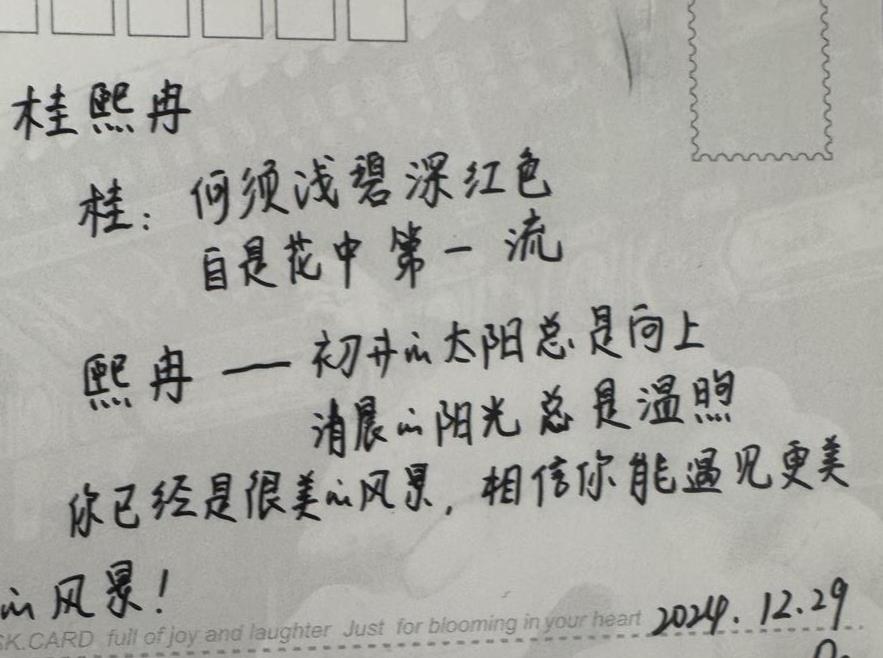 桂熙冉
桂：何须浅碧深红色
自是花中第一流
熙冉——初升的太阳总是向上
清晨的阳光总是温煦
你已经是很美的风景，相信你能遇见更美
的风景！
SK.CARD full of joy and laughter Just for blooming in your heart
2024.12.29